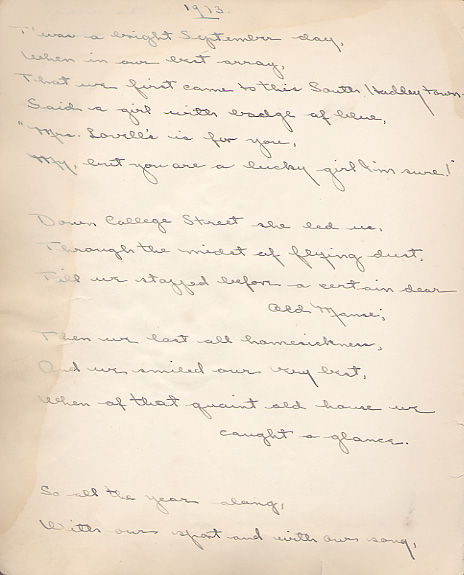 1913.
T'was a bright September day,
When in our best array,
That we first came to this South Hadley town.
Said a girl with badge of blue,
"Mrs. Lovell's is for you,
My, but you are a lucky girl I'm sure!"
Down College Street she led us,
Through the midst of flying dust.
Till we stopped before a certain dear
Old Manse;
Then we lost all homesickness,
And we smiled our very best,
When of that quaint old house we
caught a glance.
So all the year along,
With our sport and with our song,